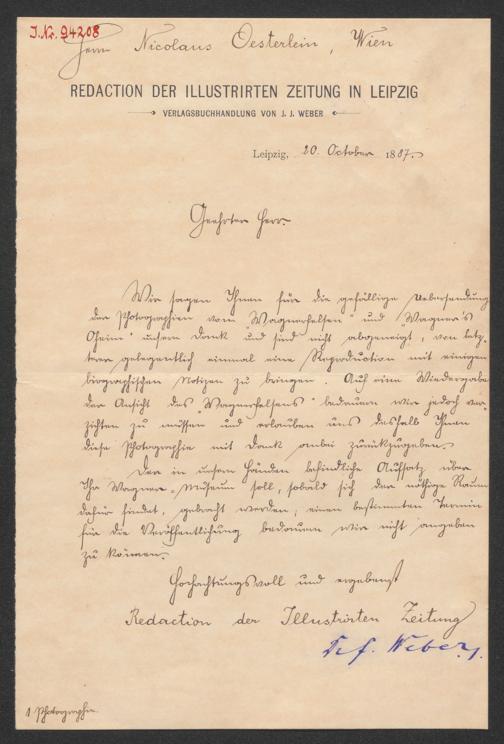 J. Nr. 94208
Herrn Nicolaus Oesterlein, Wien
REDACTION DER ILLUSTRIRTEN ZEITUNG IN LEIPZIG
VERLAGSBUCHHANDLUNG VON J. J. WEBER
Leipzig, 20. October 1887.
Geehrter Herr.
Wir sagen Ihnen für die gefällige Uebersendung
der Photographien vom "Wagnerfelsen" und "Wagner's
Oheim" unsern Dank und sind nicht abgeneigt, von letz-
terer gelegentlich einmal eine Reproduction mit einigen
biographischen Notizen zu bringen. Auf eine Wiedergabe
der Ansicht des "Wagnerfelsens" bedauern wir jedoch ver-
zichten zu müssen und erlauben uns deshalb Ihnen
diese Photographie mit Dank anbei zurückzugeben.
Der in unsern Händen befindliche Aufsatz über
Ihr Wagner-Museum soll, sobald sich der nöthige Raum
dafür findet, gebracht werden; einen bestimmten Termin
für die Veröffentlichung bedauern wir nicht angeben
zu können.
Hochachtungsvoll und ergebenst
Redaction der Illustrirten Zeitung
Weber
1 Photographie